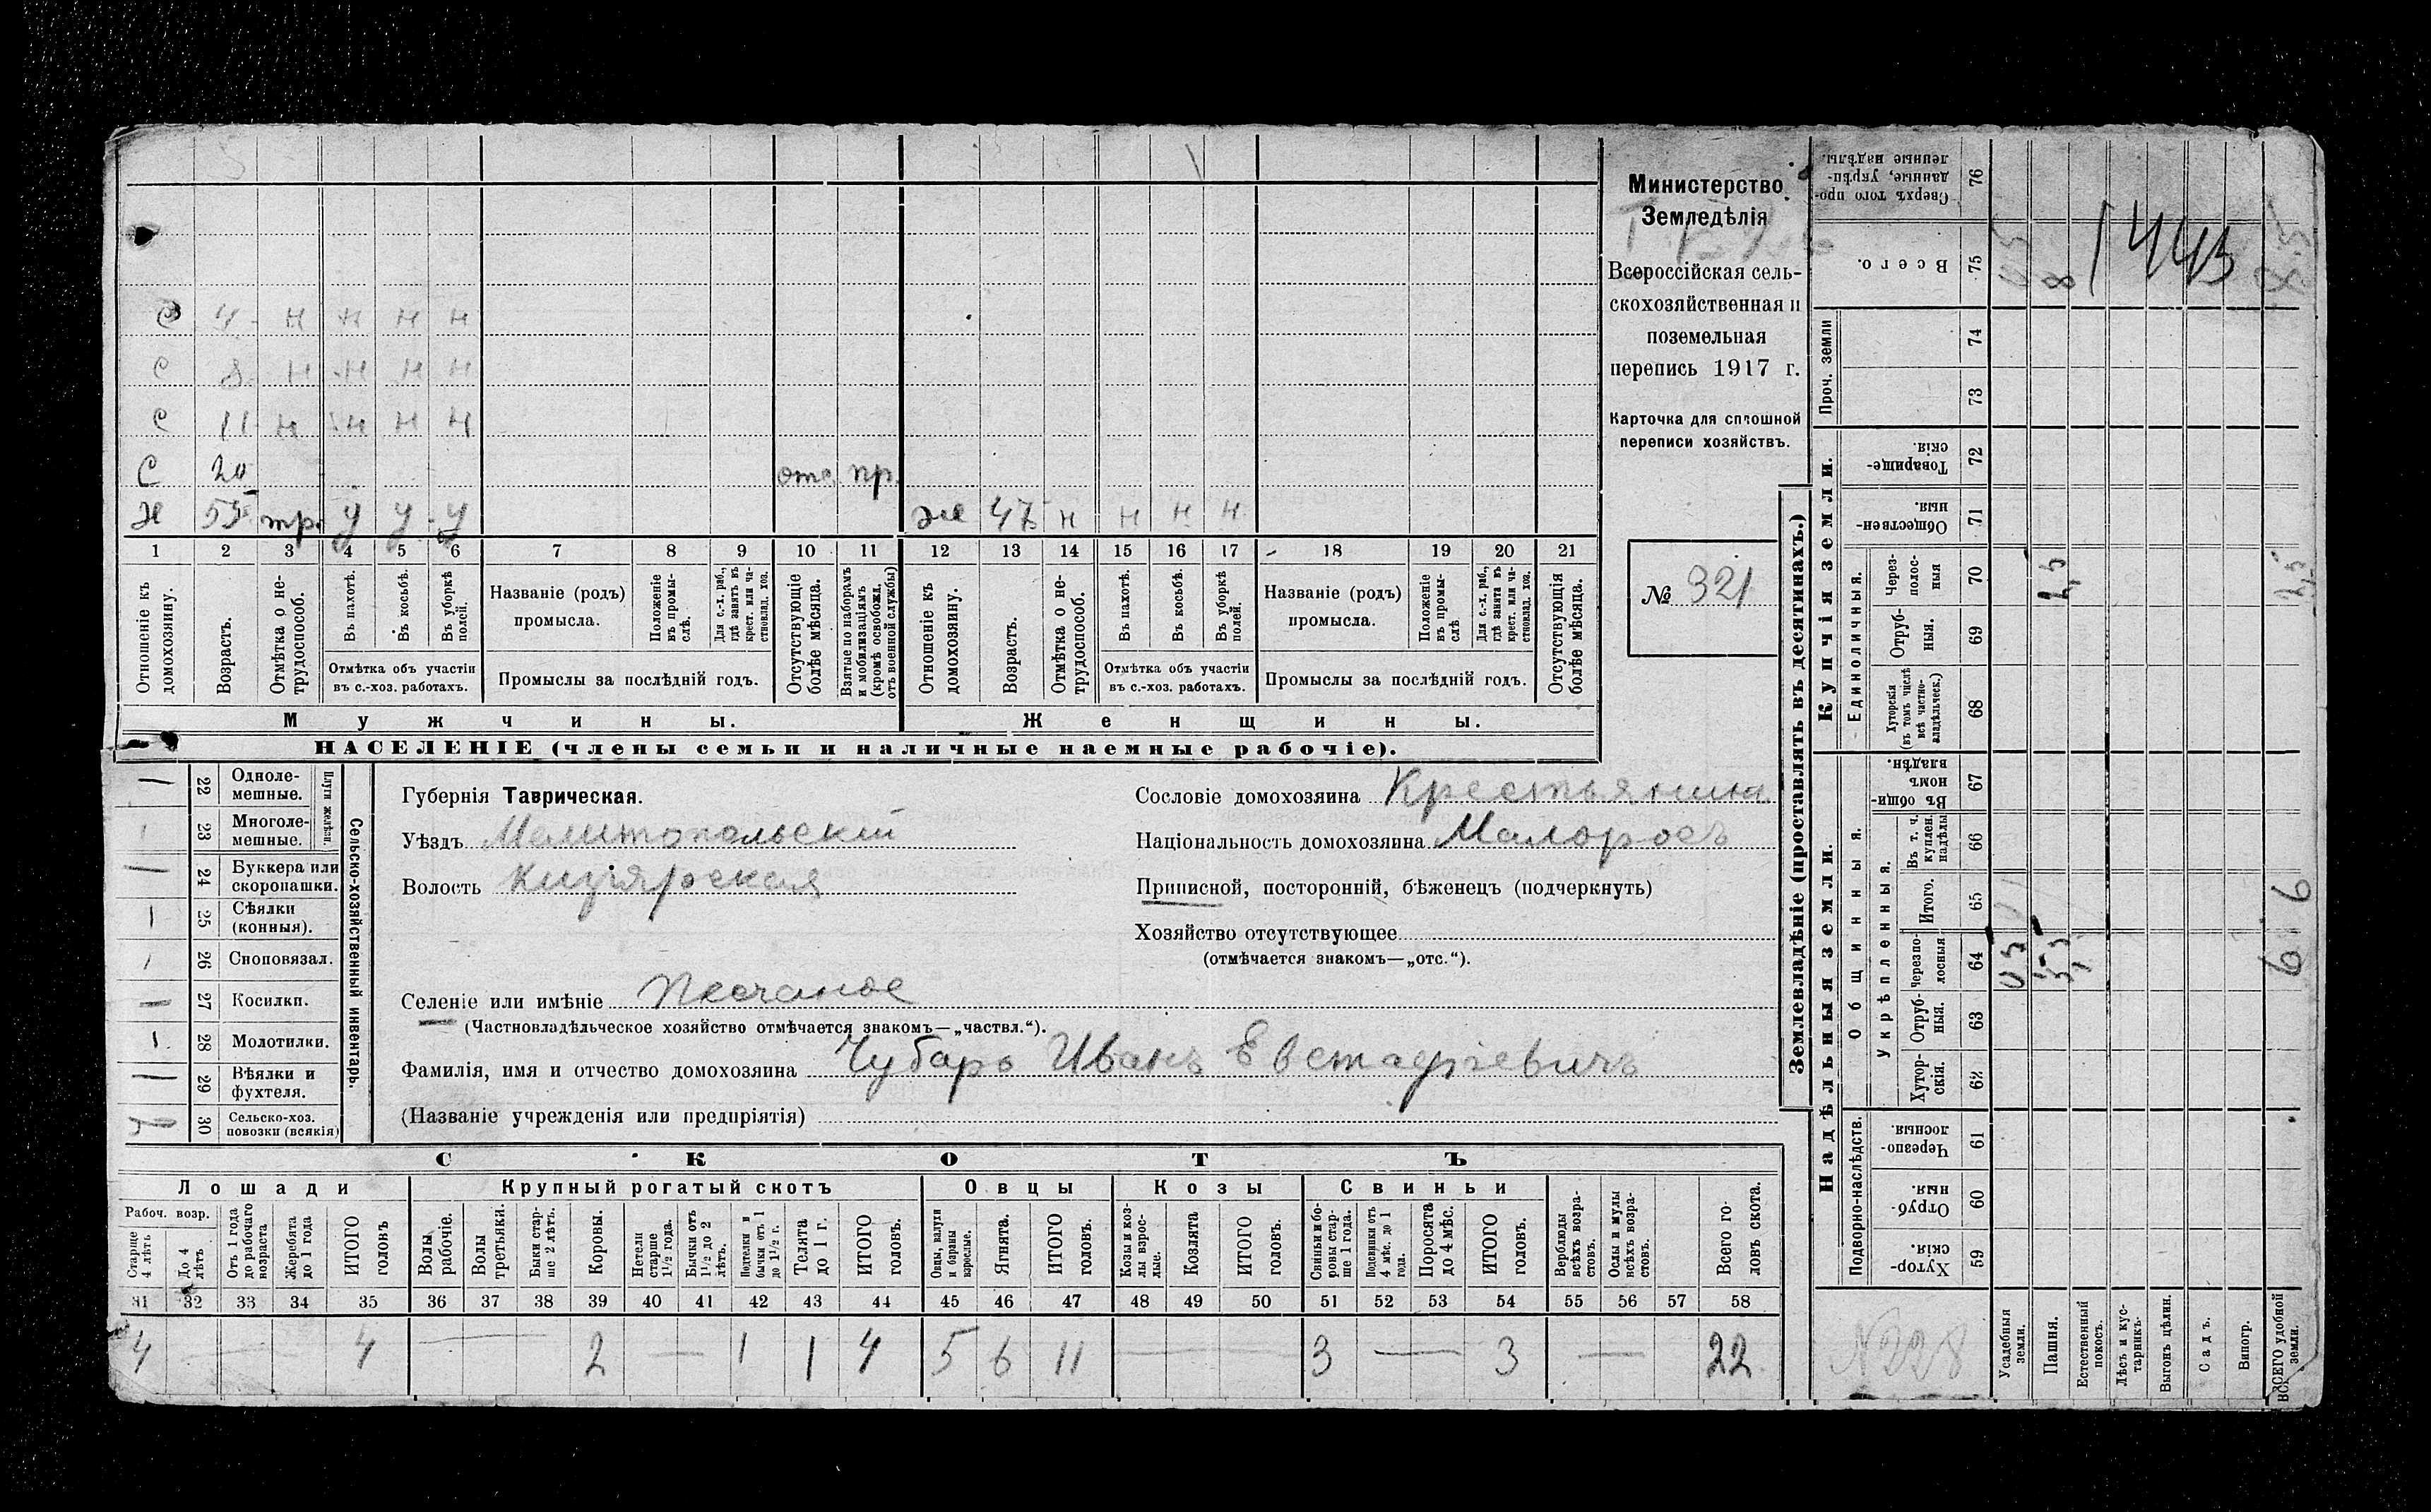 Министерство
Земледѣлія
Всероссійская сель-
скохозяйственная и
поземельная
перепись 1917 г.
Карточка для сплошной
переписи хозяйствъ.
№ 321
С 4 н н н н
С 8 н н н н
С 11 н н н н
С 20 отс пр.
Х 55 тр. у у у
же 47 н н н н
1 2 3 4 5 6 7 8 9 10 11 12 13 14 15 16 17 18 19 20 21
Отношеніе къ домохозяину.
Возрастъ.
Отмѣтка о не-трудоспособ.
Въ пахотѣ.
Въ косьбѣ.
Въ уборкѣ полей.
Отмѣтка объ участіи
въ с.-хоз. работахъ.
Названіе (родъ)
промысла.
Положеніе въ промы-слѣ.
Для с.-х. раб., гдѣ занятъ въ крест. или ча-стновлад. хоз.
Промыслы за послѣдній годъ.
Отсутствующіе болѣе мѣсяца.
Взятые по наборамъ и мобилизаціямъ (кромѣ освобожд. отъ военной службы)
Отношеніе къ домохозяину.
Возрастъ.
Отмѣтка о не-трудоспособ.
Въ пахотѣ.
Въ косьбѣ.
Въ уборкѣ полей.
Отмѣтка объ участіи
въ с.-хоз. работахъ.
Названіе (родъ)
промысла.
Положеніе въ промы-слѣ
Для с.-х. раб., гдѣ занята въ крест. или ча-стновлад. хоз.
Промыслы за послѣдній годъ.
Отсутствующія болѣе мѣсяца.
Мужчины.
Женщины.
НАСЕЛЕНІЕ (члены семьи и наличные наемные рабочіе).
Сельско-хозяйственный инвентарь.
Плуги желѣзн.
22 Одноле-мешные.
23 Многоле-мешные.
24 Буккера или скоропашки.
25 Сѣялки (конныя).
26 Сноповязал.
27 Косилки.
28 Молотилки.
29 Вѣялки и фухтеля.
30 Сельско-хоз. повозки (всякія)
Губернія Таврическая.
Уѣздъ Мелитопольскій
Волость Кизіярская
Селеніе или имѣніе Песчаное
(Частновладѣльческое хозяйство отмѣчается знакомъ—„частвл.“).
Фамилія, имя и отчество домохозяина Чубарь Иванъ Евстафіевичъ
(Названіе учрежденія или предпріятія)
Сословіе домохозяина Крестьянинъ
Національность домохозяина Малоросъ
Приписной, посторонній, бѣженецъ (подчеркнуть)
Хозяйство отсутствующее
(отмѣчается знакомъ—„отс.“).
СКОТЪ
Лошади
Крупный рогатый скотъ
Овцы
Козы
Свиньи
Рабоч. возр.
Старше 4 лѣтъ
До 4 лѣтъ
Отъ 1 года до рабочаго возраста
Жеребята до 1 года
ИТОГО головъ
Волы рабочіе.
Волы третьяки.
Быки стар-ше 2 лѣтъ.
Коровы.
Нетели старше 1½ года.
Бычки отъ 1½ до 2 лѣтъ.
Подтелки и бычки отъ 1 до 1½ г.
Телята до 1 г.
ИТОГО головъ.
Овцы, валухи и бараны взрослые.
Ягнята.
ИТОГО головъ.
Козы и коз-лы взрос-лые.
Козлята
ИТОГО головъ.
Свиньи и бо-ровы стар-ше 1 года.
Подсвинки отъ 4 мѣс. до 1 года.
Поросята до 4 мѣс.
ИТОГО головъ.
Верблюды всѣхъ возра-стовъ.
Ослы и мулы всѣхъ возра-стовъ.
Всего го-ловъ скота.
31 32 33 34 35 36 37 38 39 40 41 42 43 44 45 46 47 48 49 50 51 52 53 54 55 56 57 58
4 — — 4 — 2 — 1 1 4 5 6 11 — 3 — 3 — 22
Землевладѣніе (проставлять въ десятинахъ.)
Надѣльныя земли.
Купчія земли.
Проч. земли
Подворно-наслѣдств.
Общинныя.
Укрѣпленныя.
Единоличныя.
Хутор-скія. 59
Отруб-ныя. 60
Черезпо-лосныя 61
Хутор-скія. 62
Отруб-ныя. 63
Черезпо-лосныя 64
Итого. 65
Въ т. ч. куплен. надѣлы 66
Въ общи-номъ владѣн. 67
Хуторскія (въ томъ числѣ всѣ частно-владѣльческ.) 68
Отруб-ныя. 69
Через-полос-ныя 70
Обществен-ныя 71
Товарище-скія. 72
73
74
Всего. 75
Сверхъ того про-данные, укрѣп-ленные надѣлы. 76
Усадебныя земли.
Пашня.
Естественный покосъ.
Лѣсъ и кус-тарникъ.
Выгонъ цѣлин.
Садъ.
Виногр.
ВСЕГО удобной земли.
05
5,5
6
2,5
2,5
05
8
8.5
1443
N228